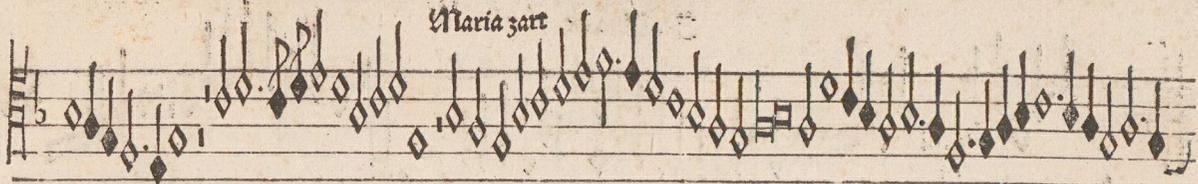 Maria zart